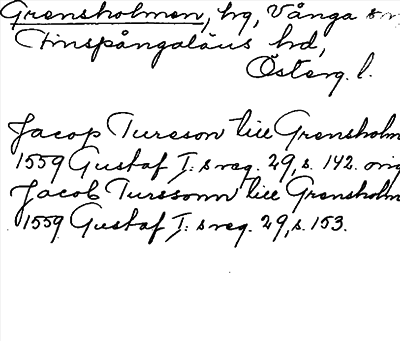 Grensholmen, hg, Vånga sn
Finspångaläns hd,
Österg. l.
Jacop Tureson till Grensholm
1559 Gustaf I: s reg. 29, s. 142. orig
Jacob Turssonn till Grensholm
1559 Gustaf I: s reg. 29, s. 153.